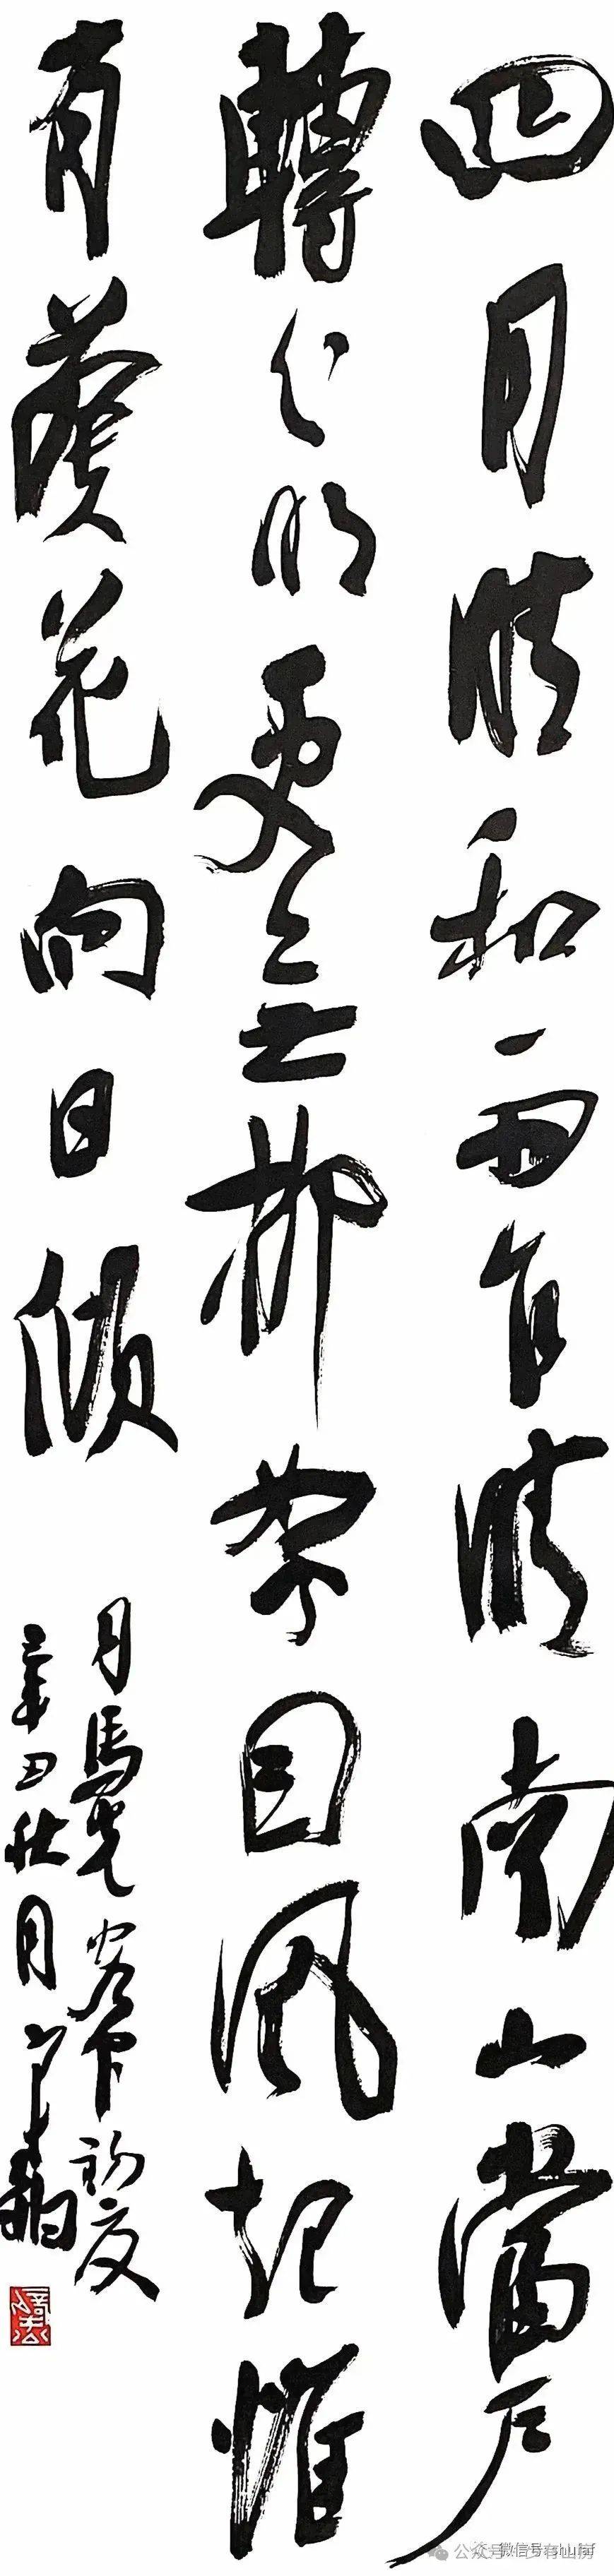 四月清和雨乍晴南山當戶
轉分明更無柳絮因風起惟
有葵花向日傾
司馬光客中初夏
辛丑秋月
公众号
微信号: shufaf